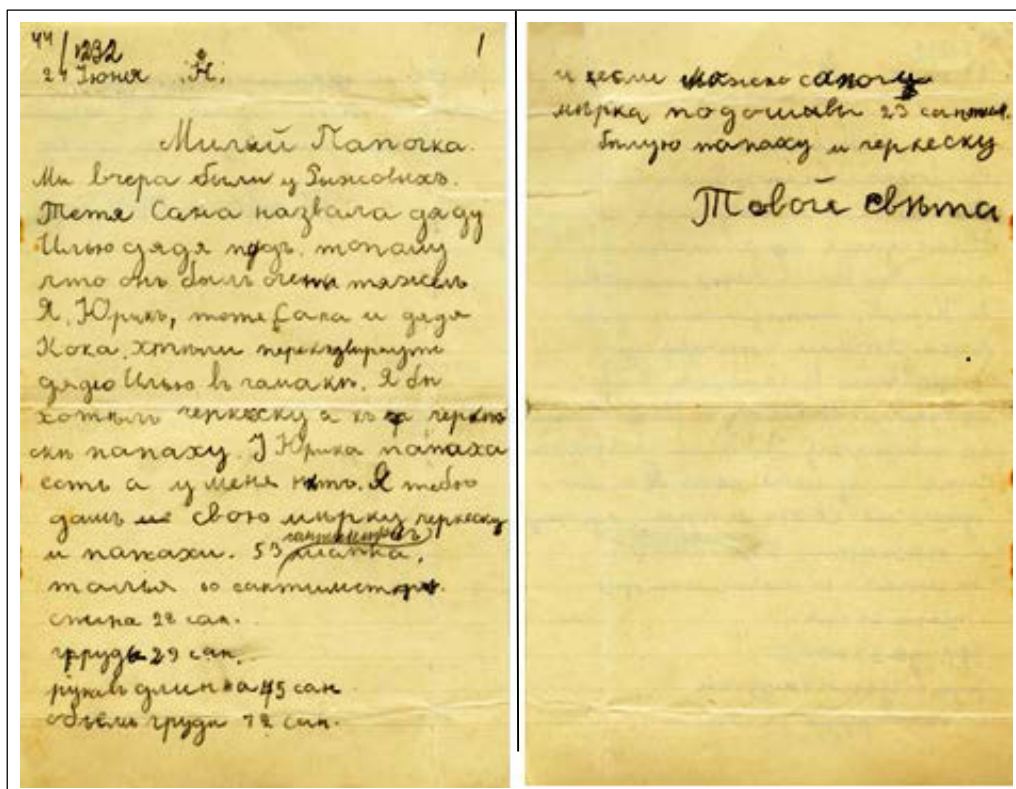 44/1232
1
24 Июня Н.
Милый Папочка.
Ми вчера были у Рыжовихъ.
Тетя Сана назвала дяду
Илью дядя пудъ. топаму
что онъ былъ очень тяжелъ
Я, Юрикъ, тоте Сана и дядя
Кока, хтѣли
дядю Илью въ гамакѣ. Я бы
хотѣлъ черкеску а къ черкѣ
скѣ папаху. У Юрика папаха
есть а у меня нѣтъ. Я тебѣ
дашъ свою мѣрку черкеску
и папахи. 53 сантиметръ шапка,
талья 60 сантиметр
спина 28 сан.
грудь 29 сан.
рукавъ длинна 45 сан
объемъ груди 72 сан.
и если можно сапоги
мѣрка подошвы 23 сантим.
бѣлую папаху и черкеску
Твовой свѣта